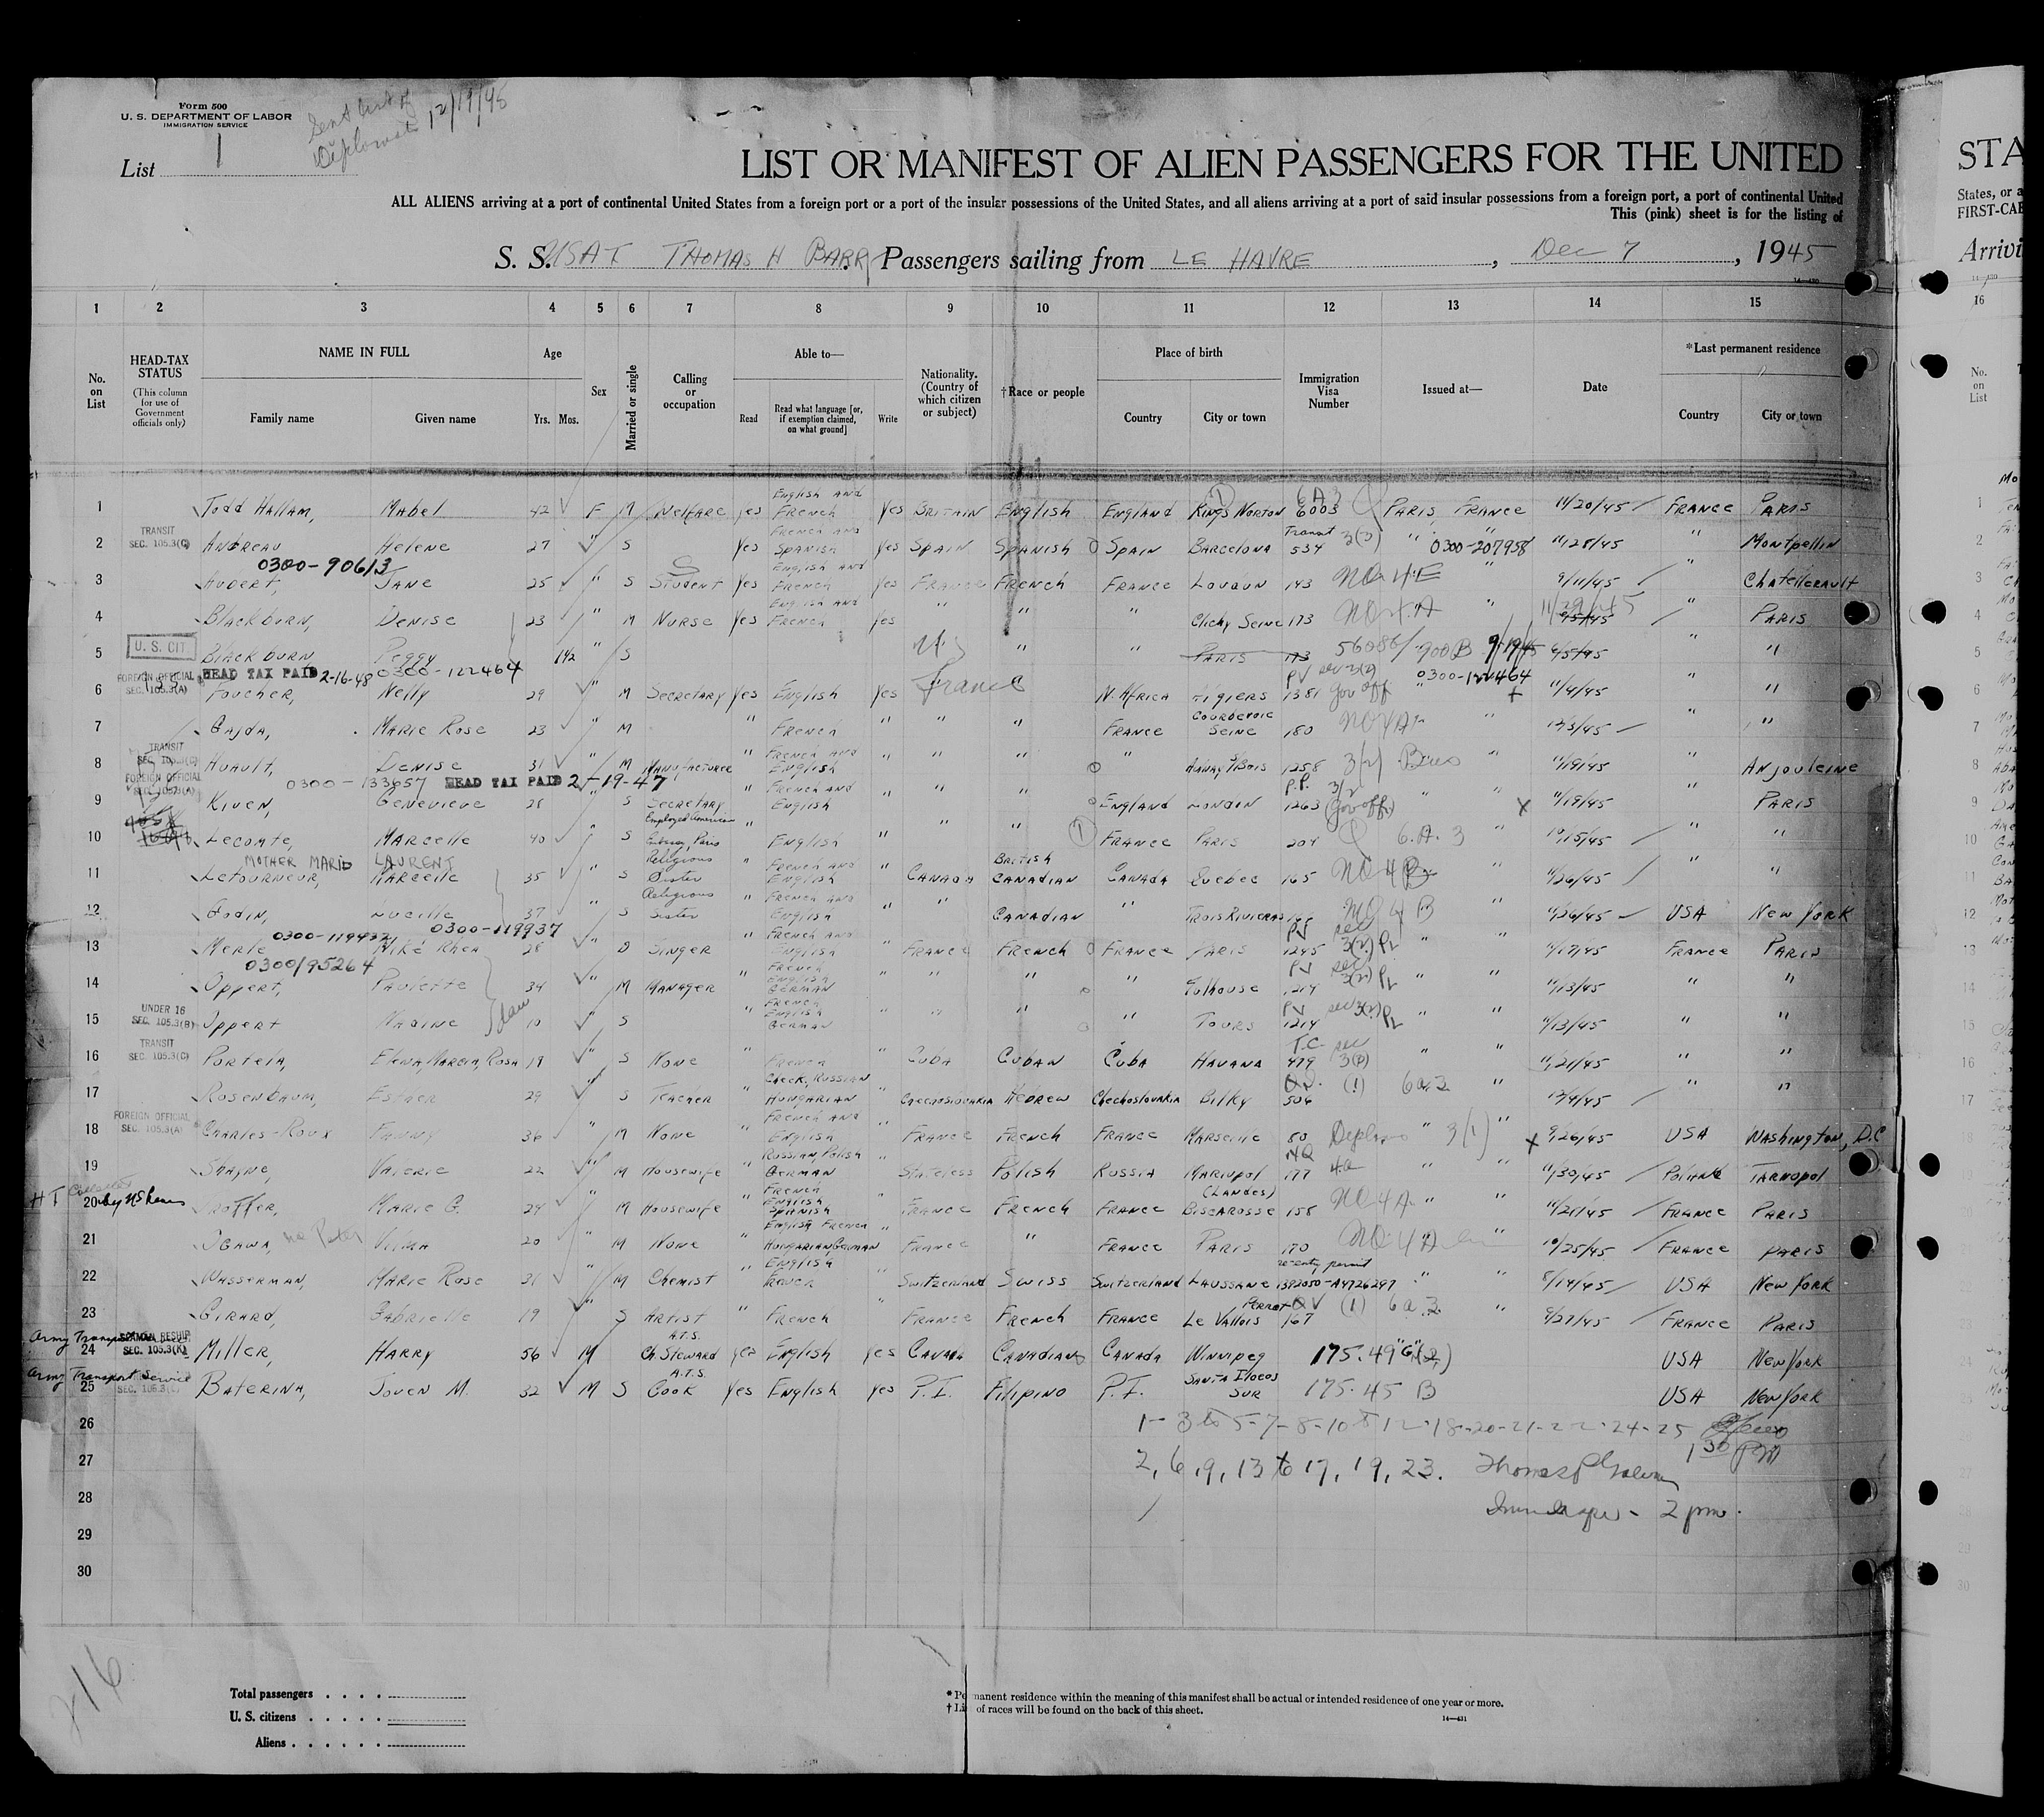 Form 500
U. S. DEPARTMENT OF LABOR
IMMIGRATION SERVICE
12/19/45
List 1
LIST OR MANIFEST OF ALIEN PASSENGERS FOR THE UNITED
ALL ALIENS arriving at a port of continental United States from a foreign port or a port of the insular possessions of the United States, and all aliens arriving at a port of said insular possessions from a foreign port, a port of continental United
This (pink) sheet is for the listing of
S. S. USAT THOMAS H BARRY Passengers sailing from LE HAVRE, Dec 7, 1945
1 2 3 4 5 6 7 8 9 10 11 12 13 14 15
No. on List
HEAD-TAX STATUS (This column for use of Government officials only)
NAME IN FULL Family name Given name
Age Yrs. Mos.
Sex
Married or single
Calling or occupation
Able to— Read Read what language [or, if exemption claimed, on what ground] Write
Nationality. (Country of which citizen or subject)
†Race or people
Place of birth Country City or town
Immigration Visa Number
Issued at—
Date
*Last permanent residence Country City or town
1 Todd Hallam, Mabel 42 F M Welfare yes English and French yes Britain English England Kings Norton 6A3 6003 Paris, France 11/20/45 France Paris
2 TRANSIT SEC. 105.3(C) Andreau Helene 27 " S yes French and Spanish yes Spain Spanish Spain Barcelona Transit 534 3(3) " 0300-207958 " 11/28/45 " Montpellin
0300-90613
3 Hubert, Jane 25 " S Student yes English and French yes France French " Loudun 143 NQ 4E " 9/11/45 " Chatellerault
4 Blackburn, Denise 23 " M Nurse yes English and French yes " " " Clichy Seine 173 NQ 4A " 11/29/45 " Paris
5 U. S. CIT. Blackburn Peggy 1½ " S " " Paris 173 56086/900B 9/19/45 " "
HEAD TAX PAID 2-16-48 0300-122464
6 FOREIGN OFFICIAL SEC. 105.3(A) Foucher, Nelly 29 " M Secretary yes English yes France " N. Africa Algiers PV 1381 Gov off 0300-122464 11/4/45 " "
7 Gajda, Marie Rose 23 " M " French " " " France Courbevoie Seine 180 NQ 4A " 12/3/45 " "
8 TRANSIT SEC. 105.3(C) Huault, Denise 31 " M Manufacturer " French and English " " " " Aulnay S/Bois 1258 3(2) Bus " 11/19/45 " Anjouleine
0300-133657 HEAD TAX PAID 2-19-47
9 FOREIGN OFFICIAL SEC. 105.3(A) Kiven, Genevieve 28 " S Secretary " French and English " " " England London P.P. 1263 3/2 (Gov off) " " 11/19/45 " Paris
10 Lecomte, Marcelle 40 " S Employed American Embassy, Paris " English " " " France Paris 204 6.A.3 " 10/15/45 " "
MOTHER MARIE LAURENT
11 Letourneur, Marcelle 35 " S Religious Sister " French and English " Canada British Canadian Canada Quebec 165 NQ 4B " 11/26/45 " "
12 Godin, Lucille 37 " S Religious Sister " French and English " " Canadian " Trois Rivieres NQ 4 B " 11/26/45 USA New York
0300-119937 0300-119937
13 Merle Niké Rhea 28 " D Singer " French and English " France French France Paris PV 1245 sec 3(2) PL " " 11/17/45 France Paris
0300/95264
14 Oppert, Paulette 34 " M Manager " French English German " " " " Mulhouse PV 1214 sec 3(2) PL " " 11/13/45 " "
15 UNDER 16 SEC. 105.3(B) Oppert Nadine 10 " S " French English German " " " " Tours PV 1214 sec 3(2) PL " " 11/13/45 " "
16 TRANSIT SEC. 105.3(C) Portela, Elena, Marcia, Rosa 19 " S None " French " Cuba Cuban Cuba Havana T.C. 479 sec 3(2) " " 11/21/45 " "
17 Rosenbaum, Esther 29 " S Teacher " Check, Russian Hungarian " Chechoslovakia Hebrew Chechoslovakia Bilky 506 (1) 6a3 " 12/4/45 " "
18 FOREIGN OFFICIAL SEC. 105.3(A) Charles-Roux Fanny 36 " M None " French and English " France French France Marseille 80 3(1) " 9/26/45 USA Washington, D.C
19 Shayne, Valerie 22 " M Housewife " Russian, Polish German " Stateless Polish Russia Mariupol NQ 177 4a " " 11/30/45 Poland Tarnopol
20 Trotter, Marie G. 24 " M Housewife " French English Spanish " France French France (Landes) Biscarosse 158 NQ 4A " " 11/21/45 France Paris
21 Ogawa, Vilma 20 " M None " English French Hungarian, German " France " France Paris 170 NQ 4A " 10/25/45 France Paris
22 Wasserman, Marie Rose 31 " M Chemist " English French " Switzerland Swiss Switzerland Laussane re-entry permit 1392050-A4726297 " " 8/14/45 USA New York
23 Girard, Gabrielle 19 " S Artist " French " France French France Le Vallois Perret QV 167 (1) 6a3 " 9/27/45 France Paris
Army Transport
24 SEC. 105.3(K) Miller, Harry 56 M A.T.S. Ch. Steward yes English yes Canada Canadian Canada Winnipeg 175.49 "G"(2) USA New York
Army Transport Service
25 Baterina, Joven M. 32 M S A.T.S. Cook yes English yes P.I. Filipino P.I. Santa Ilocos Sur 175.45 B USA New York
26 1- 3 to 5-7-8-10 to 12-18-20-21-22-24-25
1 30 PM
27 2, 6, 9, 13 to 17, 19, 23.
28 2 pm.
29
30
216
Total passengers
U. S. citizens
Aliens
* Permanent residence within the meaning of this manifest shall be actual or intended residence of one year or more.
† List of races will be found on the back of this sheet.
14—431
STA
States, or a
FIRST-CAB
Arrivi
16
No. on List